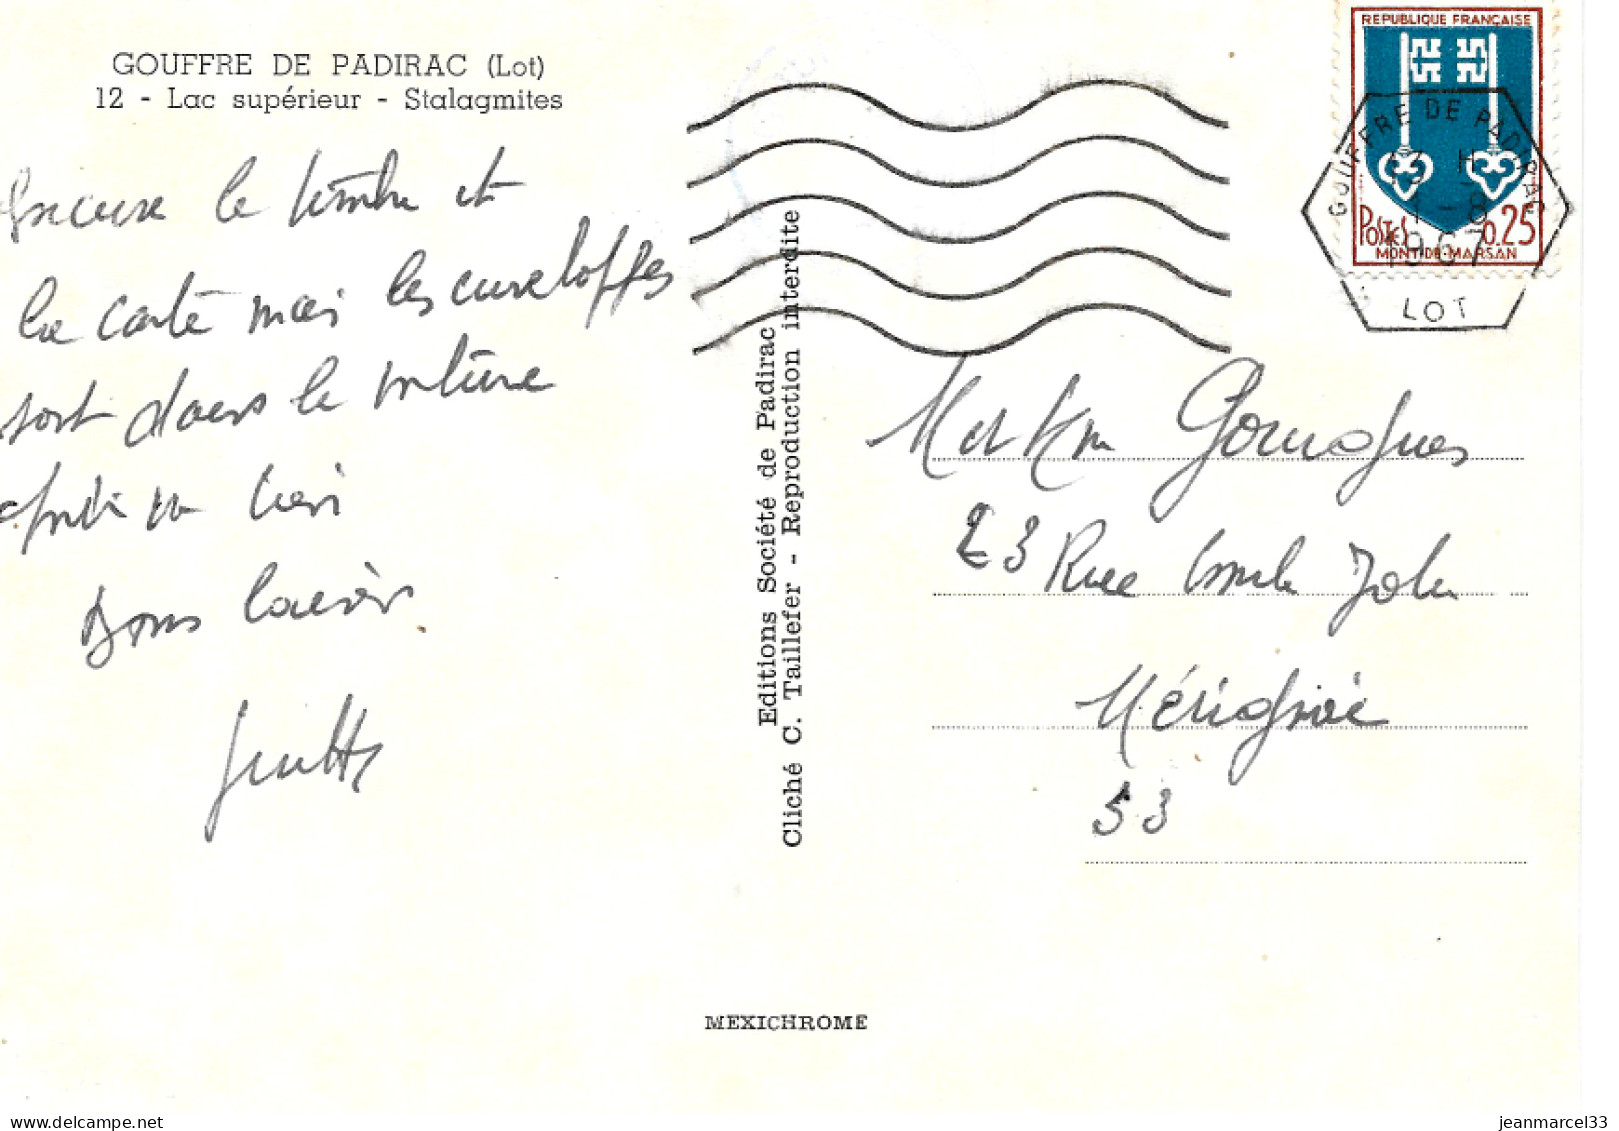 GOUFFRE DE PADIRAC (Lot)
12 - Lac supérieur - Stalagmites
le timbre et
la carte mais les
sont dans la voiture
Bons baisers
Editions Société de Padirac
Cliché C. Taillefer - Reproduction interdite
REPUBLIQUE FRANÇAISE
POSTES 0,25
MONT-DE-MARSAN
GOUFFRE DE PADIRAC
13 H
1 - 8
1967
LOT
23 Rue John
Mérignac
33
MEXICHROME
delcampe.net
jeanmarcel33